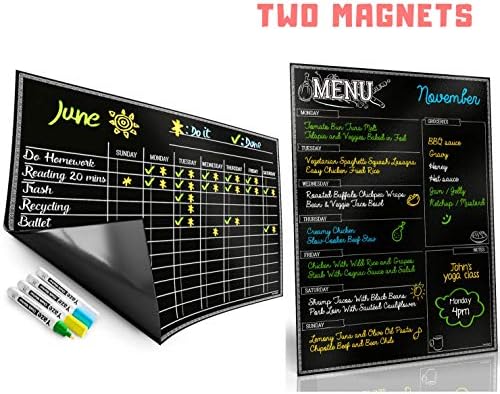 TWO MAGNETS
June
: Do it
: Done
SUNDAY
MONDAY
TUESDAY
WEDNESDAY
THURSDAY
FRIDAY
SATURDAY
Do Homework
Reading 20 mins
Trash
Recycling
Ballet
MENU
November
MONDAY
Tomato Bun Tuna Melt
Tilapia and Veggies Baked in Foil
TUESDAY
Vegetarian Spaghetti Squash Lasagna
Easy Chicken Fried Rice
WEDNESDAY
Roasted Buffalo Chickpea Wraps
Bean & Veggie Taco Bowl
THURSDAY
Creamy Chicken
Slow-Cooker Beef Stew
FRIDAY
Chicken With Wild Rice and Grapes
Steak With Cognac Sauce and Salad
SATURDAY
Shrimp Tacos With Black Beans
Pork Loin With Sautéed Cauliflower
SUNDAY
Lemony Tuna and Olive Oil Pasta
Chipotle Beef and Beer Chili
GROCERIES
BBQ sauce
Gravy
Honey
Hot sauce
Jam / Jelly
Ketchup / Mustard
NOTES
John's
yoga class
Monday
4pm